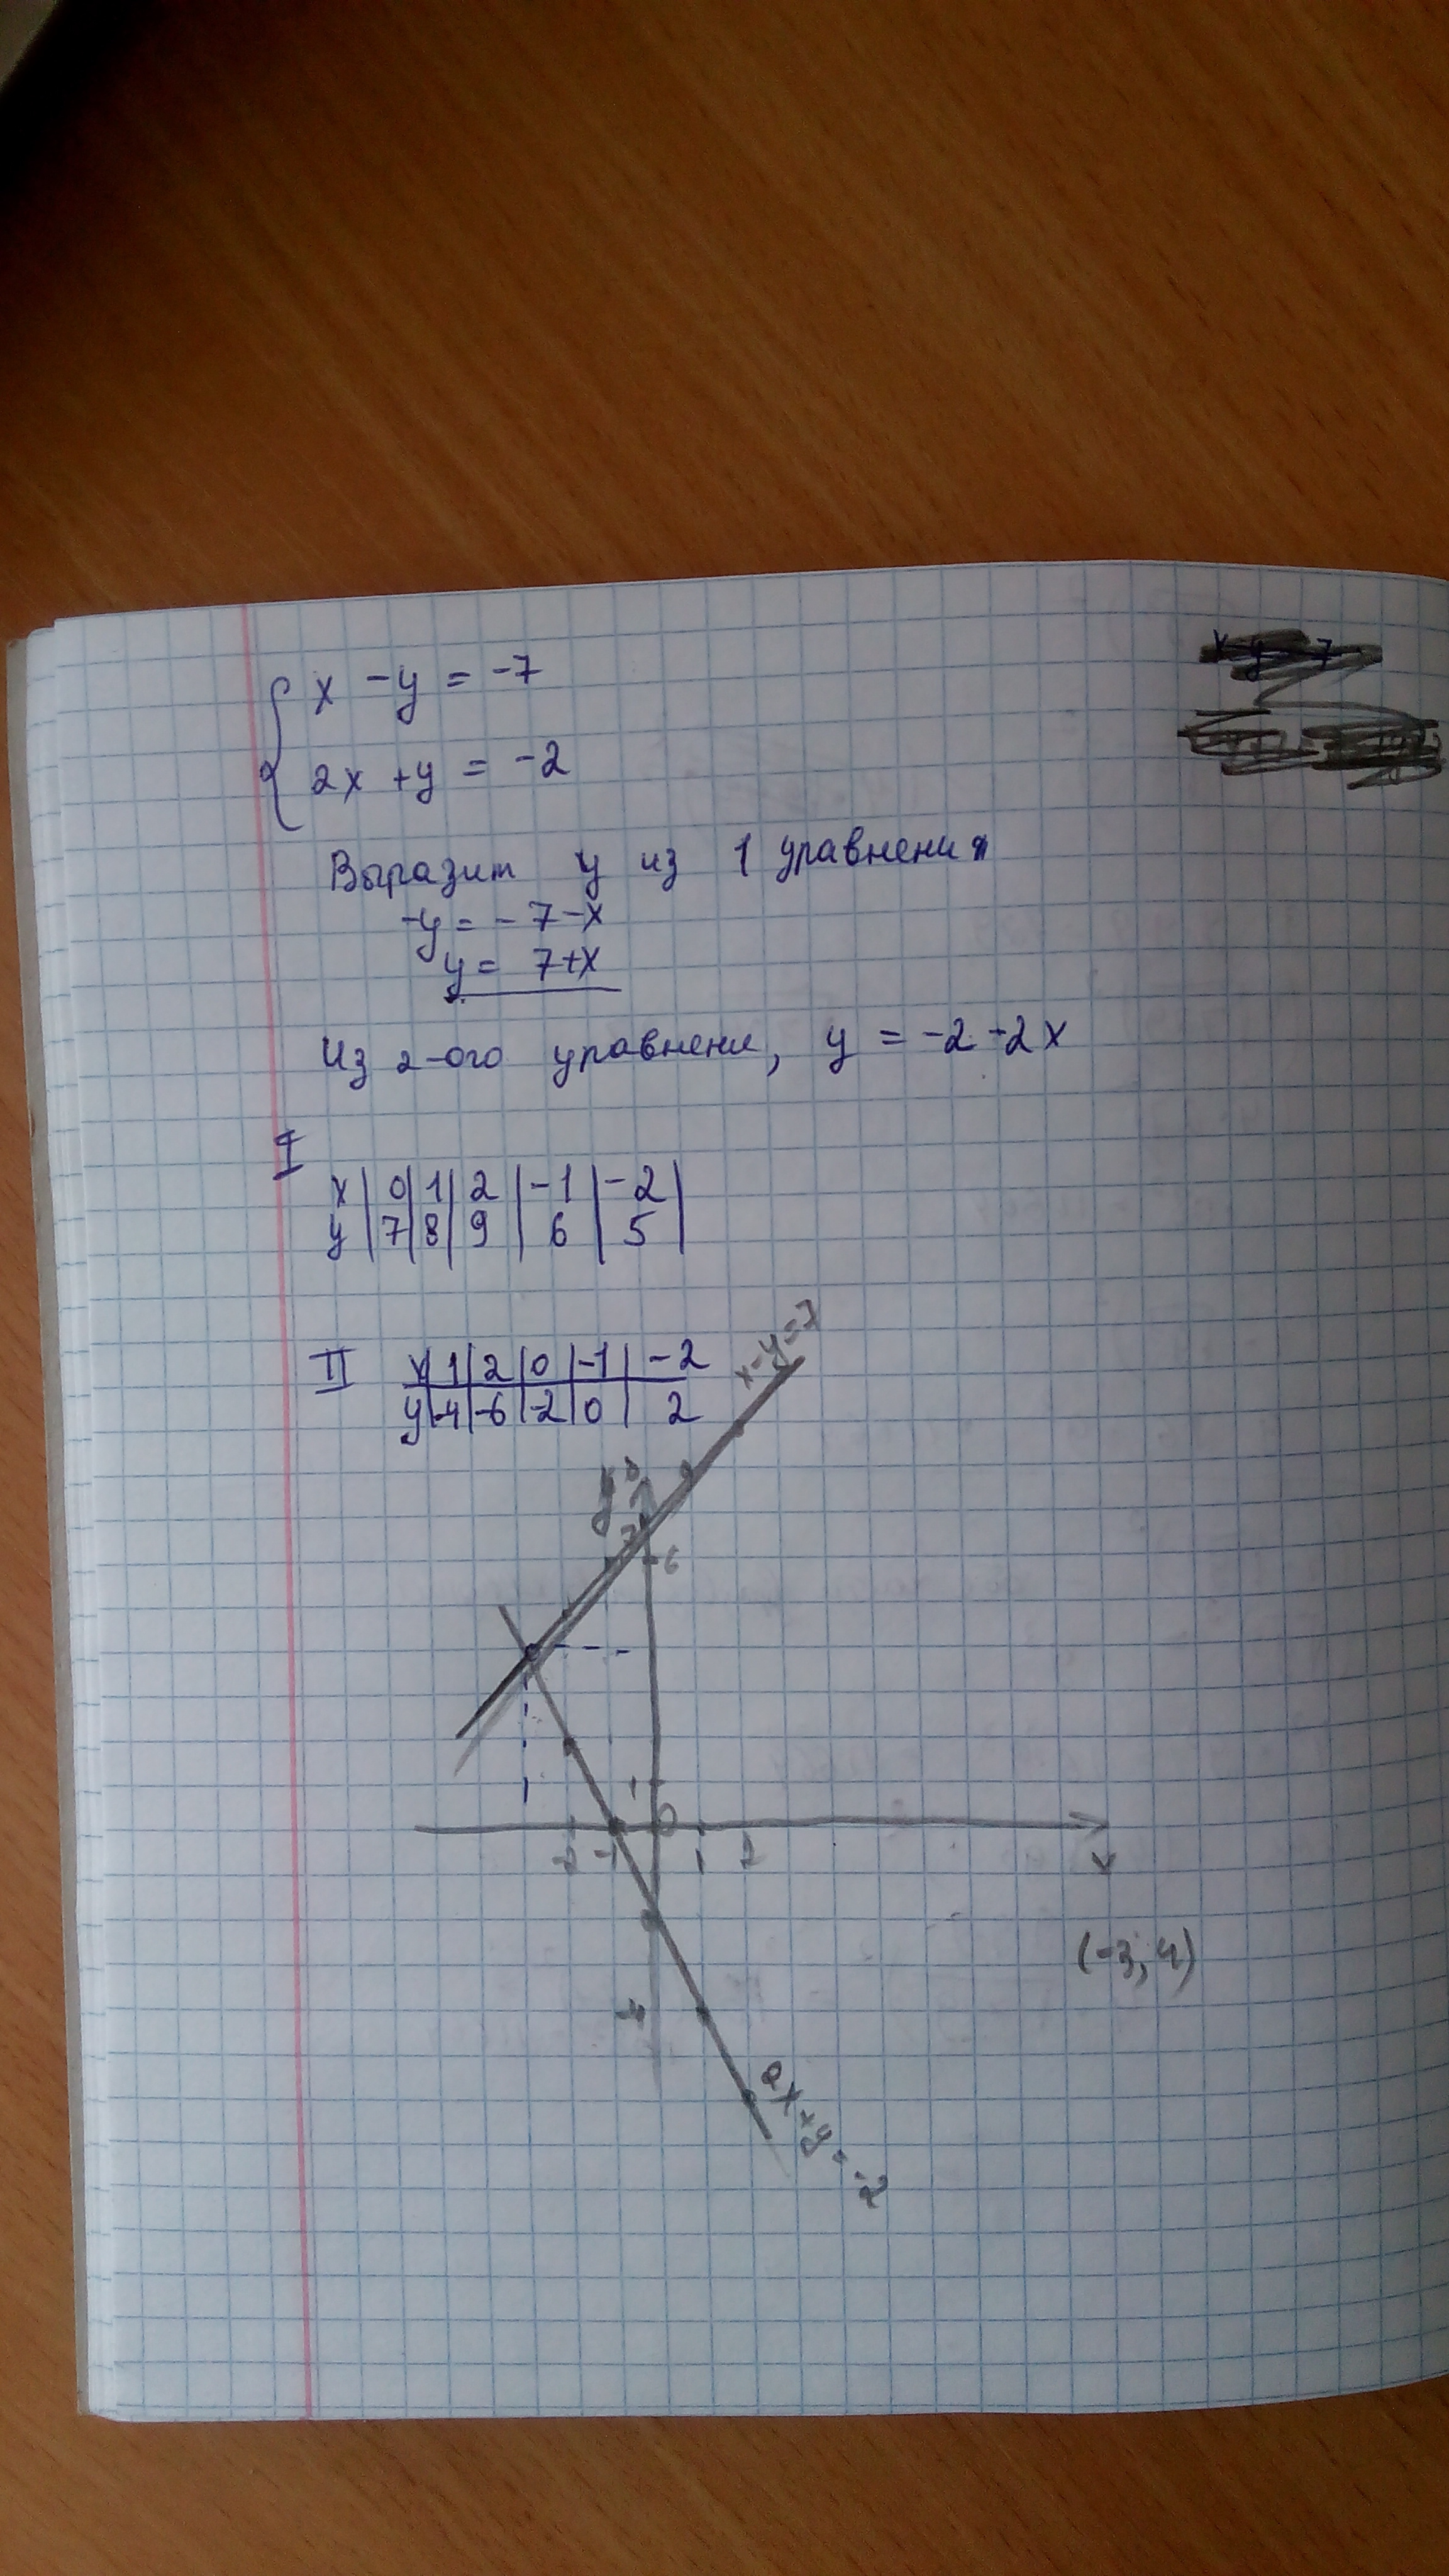 x - y = -7
2x + y = -2
Выразим y из 1 уравнения
-y = -7-x
y = 7+x
Из 2-ого уравнени, y = -2 -2x
I
x | 0 | 1 | 2 | -1 | -2 |
y | 7 | 8 | 9 | 6 | 5 |
II
x | 1 | 2 | 0 | -1 | -2
y | -4 | -6 | -2 | 0 | 2
x-y=7
y 8
7
6
1
0
-2 -1 1 2
x
(-3, 4)
-4
2x+y=-2